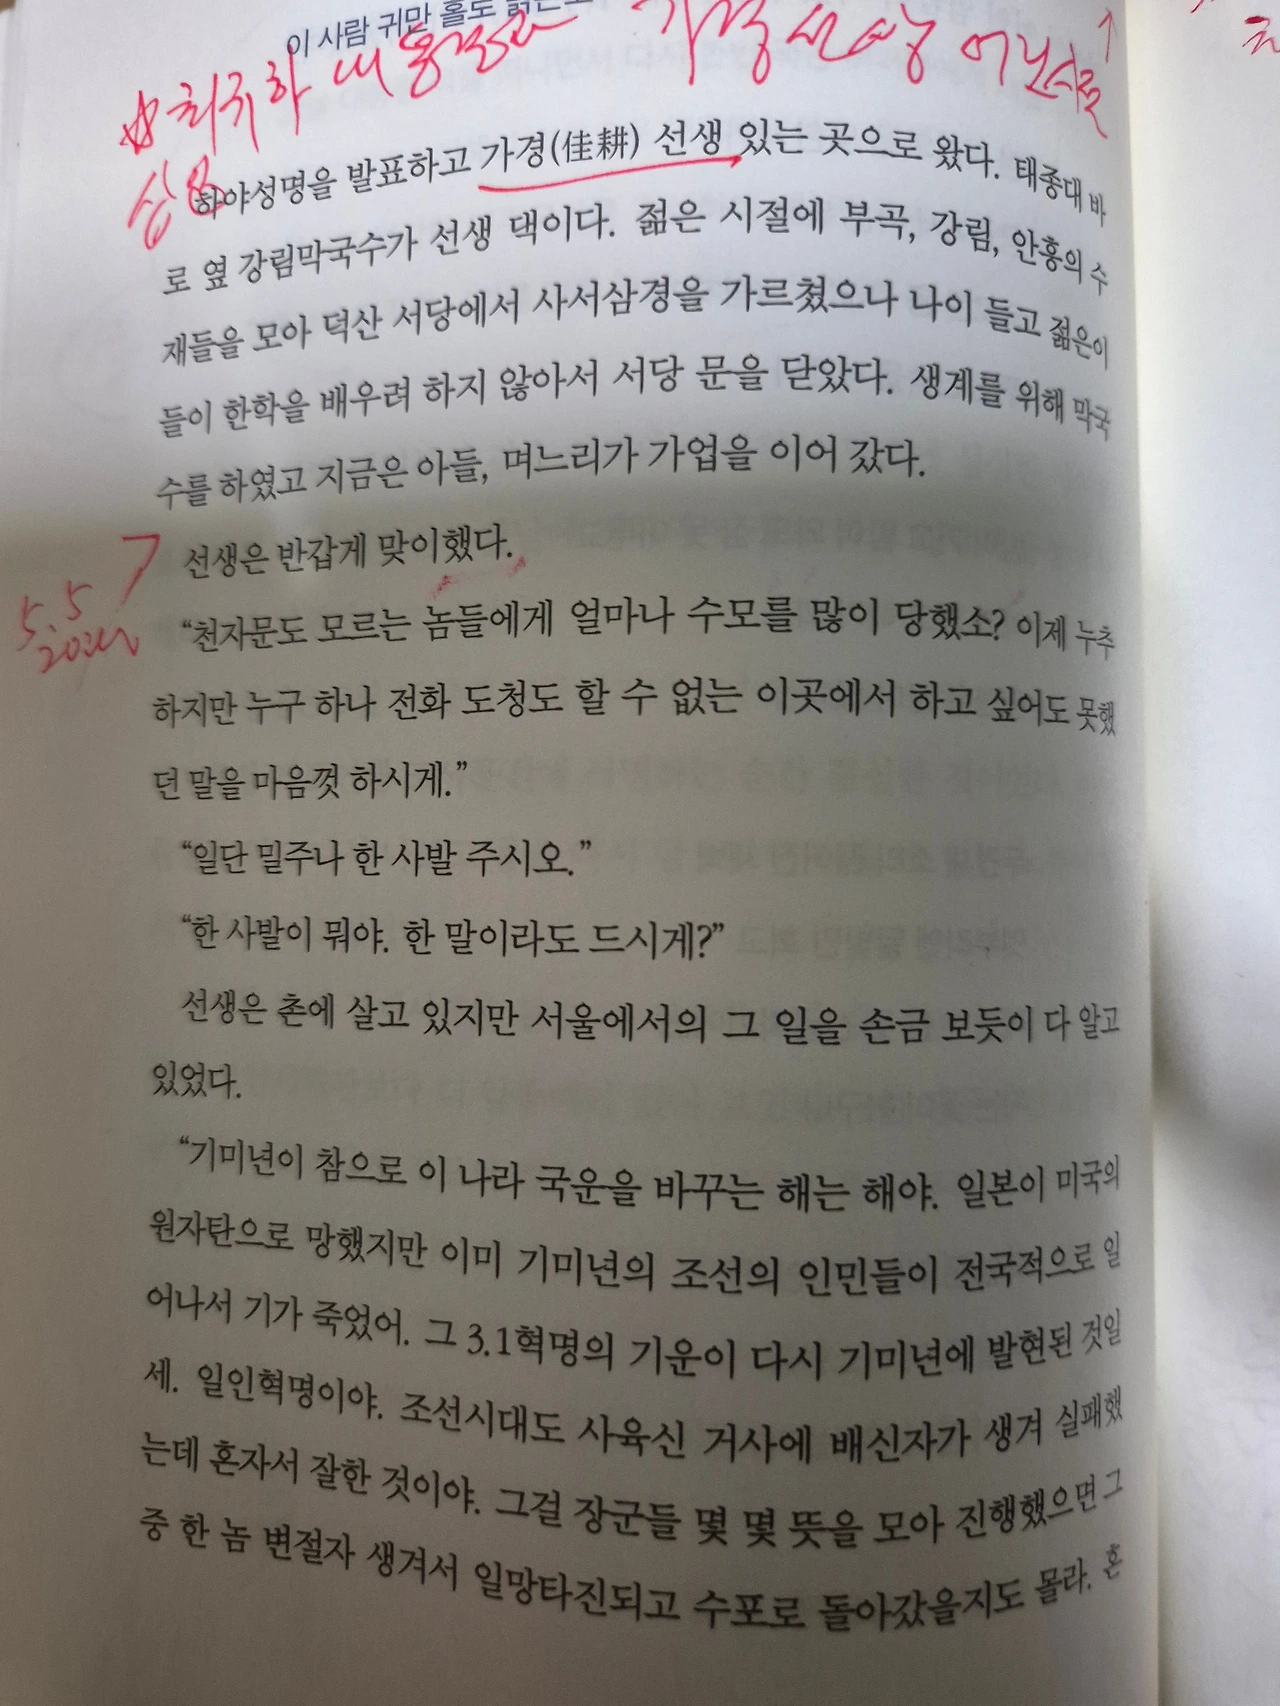 이 사람 귀만 홀도
☆최규하 내용
가경선생 어
하야성명을 발표하고 가경(佳耕) 선생 있는 곳으로 왔다. 태종대 바
로 옆 강림막국수가 선생 댁이다. 젊은 시절에 부곡, 강림, 안흥의 수
재들을 모아 덕산 서당에서 사서삼경을 가르쳤으나 나이 들고 젊은이
들이 한학을 배우려 하지 않아서 서당 문을 닫았다. 생계를 위해 막국
수를 하였고 지금은 아들, 며느리가 가업을 이어 갔다.
선생은 반갑게 맞이했다.
5.5
“천자문도 모르는 놈들에게 얼마나 수모를 많이 당했소? 이제 누추
하지만 누구 하나 전화 도청도 할 수 없는 이곳에서 하고 싶어도 못했
던 말을 마음껏 하시게.”
“일단 밀주나 한 사발 주시오.”
“한 사발이 뭐야. 한 말이라도 드시게?”
선생은 촌에 살고 있지만 서울에서의 그 일을 손금 보듯이 다 알고
있었다.
“기미년이 참으로 이 나라 국운을 바꾸는 해는 해야. 일본이 미국의
원자탄으로 망했지만 이미 기미년의 조선의 인민들이 전국적으로 일
어나서 기가 죽었어. 그 3.1혁명의 기운이 다시 기미년에 발현된 것일
세. 일인혁명이야. 조선시대도 사육신 거사에 배신자가 생겨 실패했
는데 혼자서 잘한 것이야. 그걸 장군들 몇 몇 뜻을 모아 진행했으면 그
중 한 놈 변절자 생겨서 일망타진되고 수포로 돌아갔을지도 몰라. 혼